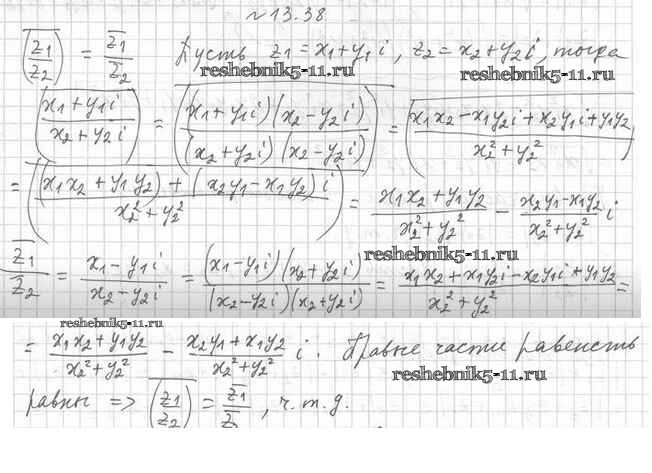 №13.38.
\overline{(z1/z2)} = \overline{z1}/\overline{z2} Пусть z1 = x1+y1i, z2 = x2+y2i, тогда
reshebnik5-11.ru reshebnik5-11.ru
\overline{((x1+y1i)/(x2+y2i))} = \overline{((x1+y1i)(x2-y2i)/(x2+y2i)(x2-y2i))} = \overline{((x1x2-x1y2i+x2y1i+y1y2)/(x2²+y2²))}
= \overline{(((x1x2+y1y2)+(x2y1-x1y2)i)/(x2²+y2²))} = (x1x2+y1y2)/(x2²+y2²) - (x2y1-x1y2)/(x2²+y2²) i
reshebnik5-11.ru
\overline{z1}/\overline{z2} = (x1-y1i)/(x2-y2i) = (x1-y1i)(x2+y2i)/(x2-y2i)(x2+y2i) = (x1x2+x1y2i-x2y1i+y1y2)/(x2²+y2²) =
reshebnik5-11.ru
= (x1x2+y1y2)/(x2²+y2²) - (x2y1+x1y2)/(x2²+y2²) i. Правые части равенств
reshebnik5-11.ru
равны => \overline{(z1/z2)} = \overline{z1}/\overline{z}, ч.т.д.